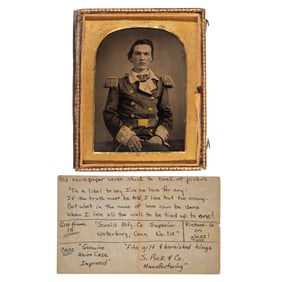 Old newspaper verse stuck to back of picture
"'Tis a libel to say I've no love for any:
If the truth must be told, I love but too many.
But what in the name of love can be done
When I love all too well to be tied up to one!
Case from "Scovill Mfg. Co Superior
Waterbury, Conn No. 1st"
Picture is on glass!
Case "Genuine
Union Case
Improved"
"Fine gilt & burnished hinge
S. Peck & Co.
Manufacturing"